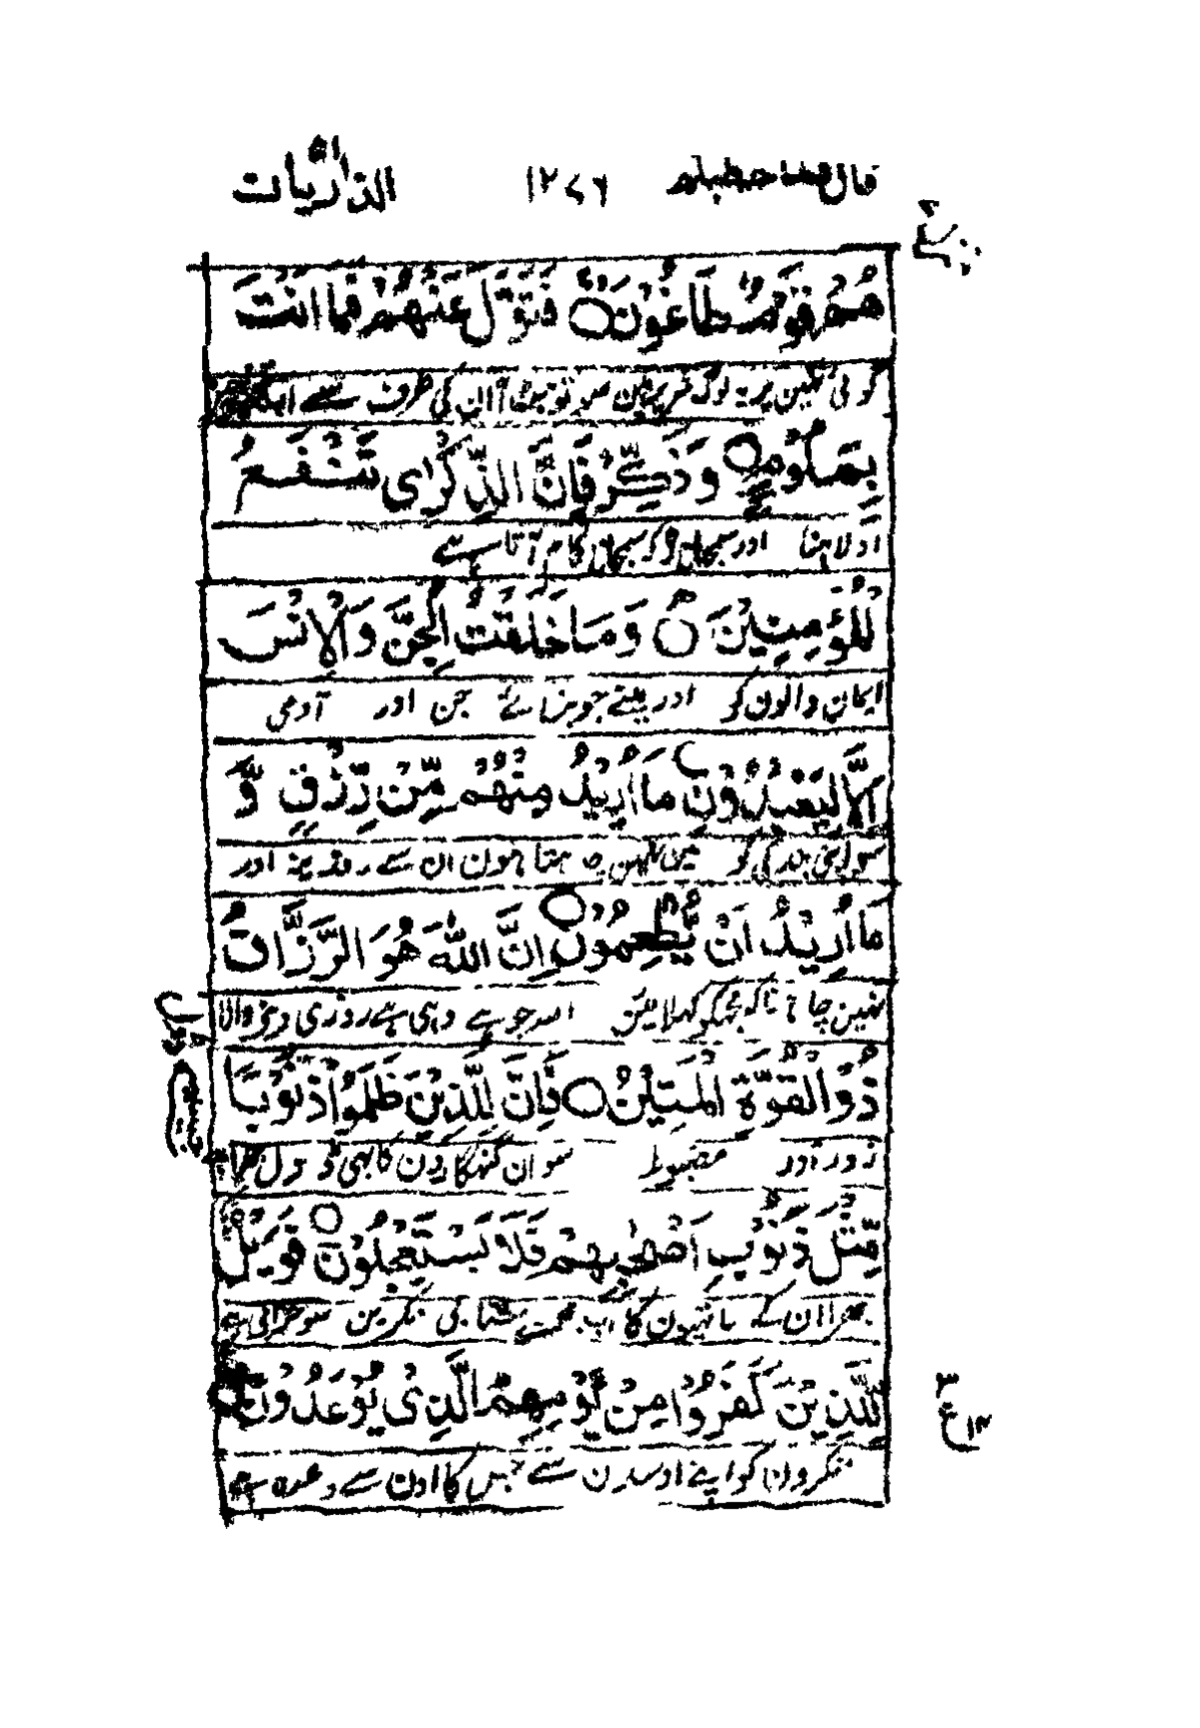 قال فما خطبكم ١٢٧٦ الذاريات
هُمْ قَوْمٌ طَاغُوْنَ ۝ فَتَوَلَّ عَنْهُمْ فَمَا اَنْتَ
کوئی نہین پر یہ لوگ شریر ہین سو تو ہٹ آ ان کی طرف سے اب
بِمَلُوْمٍ ۝ وَذَكِّرْ فَاِنَّ الذِّكْرٰى تَنْفَعُ
اولاہنا اور سمجھا کہ سمجھانا کام آتا ہے
الْمُؤْمِنِيْنَ ۝ وَمَا خَلَقْتُ الْجِنَّ وَالْاِنْسَ
ایمان والون کو اور مینے جو بنائے جن اور آدمی
اِلَّا لِيَعْبُدُوْنِ مَا اُرِيْدُ مِنْهُمْ مِّنْ رِّزْقٍ وَّ
سو اپنی بندگی کو مین نہین چاہتا ہون ان سے روزینہ اور
مَا اُرِيْدُ اَنْ يُّطْعِمُوْنِ ۝ اِنَّ اللّٰهَ هُوَ الرَّزَّاقُ
نہین چاہتا کہ مجھکو کھلائین اللہ جو ہے وہی ہے روزی دینے والا
ذُو الْقُوَّةِ الْمَتِيْنُ ۝ فَاِنَّ لِلَّذِيْنَ ظَلَمُوْا ذَنُوْبًا
زور آور مضبوط سو ان گنہگارون کا بھی ڈول بھرا ہے
مِّثْلَ ذَنُوْبِ اَصْحٰبِهِمْ فَلَا يَسْتَعْجِلُوْنِ ۝ فَوَيْلٌ
بھرا ان کے ساتھیون کا اب مجھ سے شتابی نکرین سو خرابی ہے
لِّلَّذِيْنَ كَفَرُوْا مِنْ يَّوْمِهِمُ الَّذِىْ يُوْعَدُوْنَ ۝
منکرون کو اپنے اوس دن سے جس کا اون سے وعدہ ہے
٣
ع